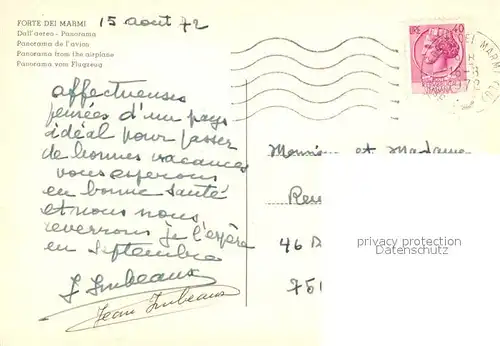 FORTE DEI MARMI
15 août 72
Dall'aereo - Panorama
Panorama de l'avion
Panorama from the airplane
Panorama vom Flugzeug
affectueuses
pensées d'un pays
idéal pour passer
de bonnes vacances
vous espérons
en bonne santé
et nous nous
reverrons je l'espère
en septembre
J Imbeaux
Jean Imbeaux
LIRE 40
EI MARMI
1972
Monsieur et Madame
46
751
privacy protection
Datenschutz